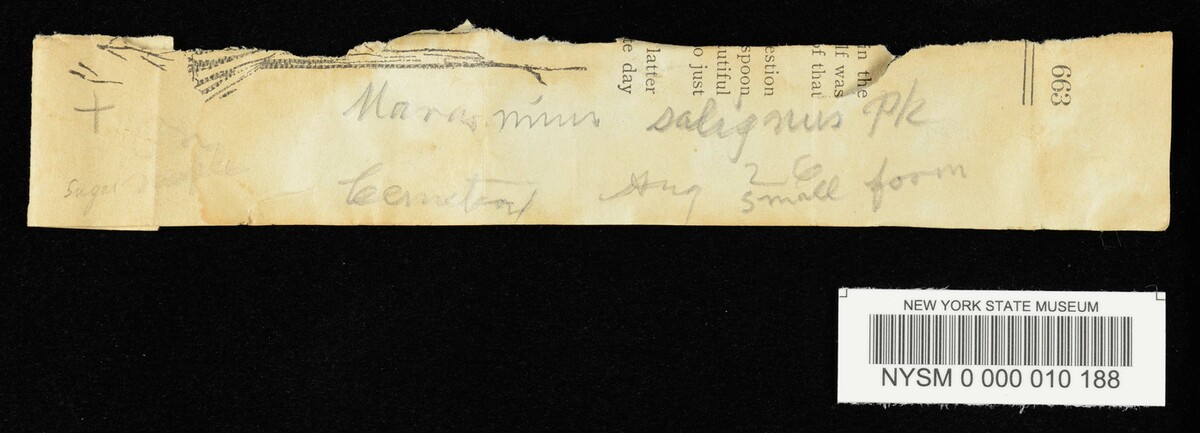 Marasmius salignus Pk
Cemetery Aug 26
small form
+
on
Sugar maple
663
in the
lf was
of that
estion
spoon
autiful
o just
latter
te day
NEW YORK STATE MUSEUM
NYSM 0 000 010 188